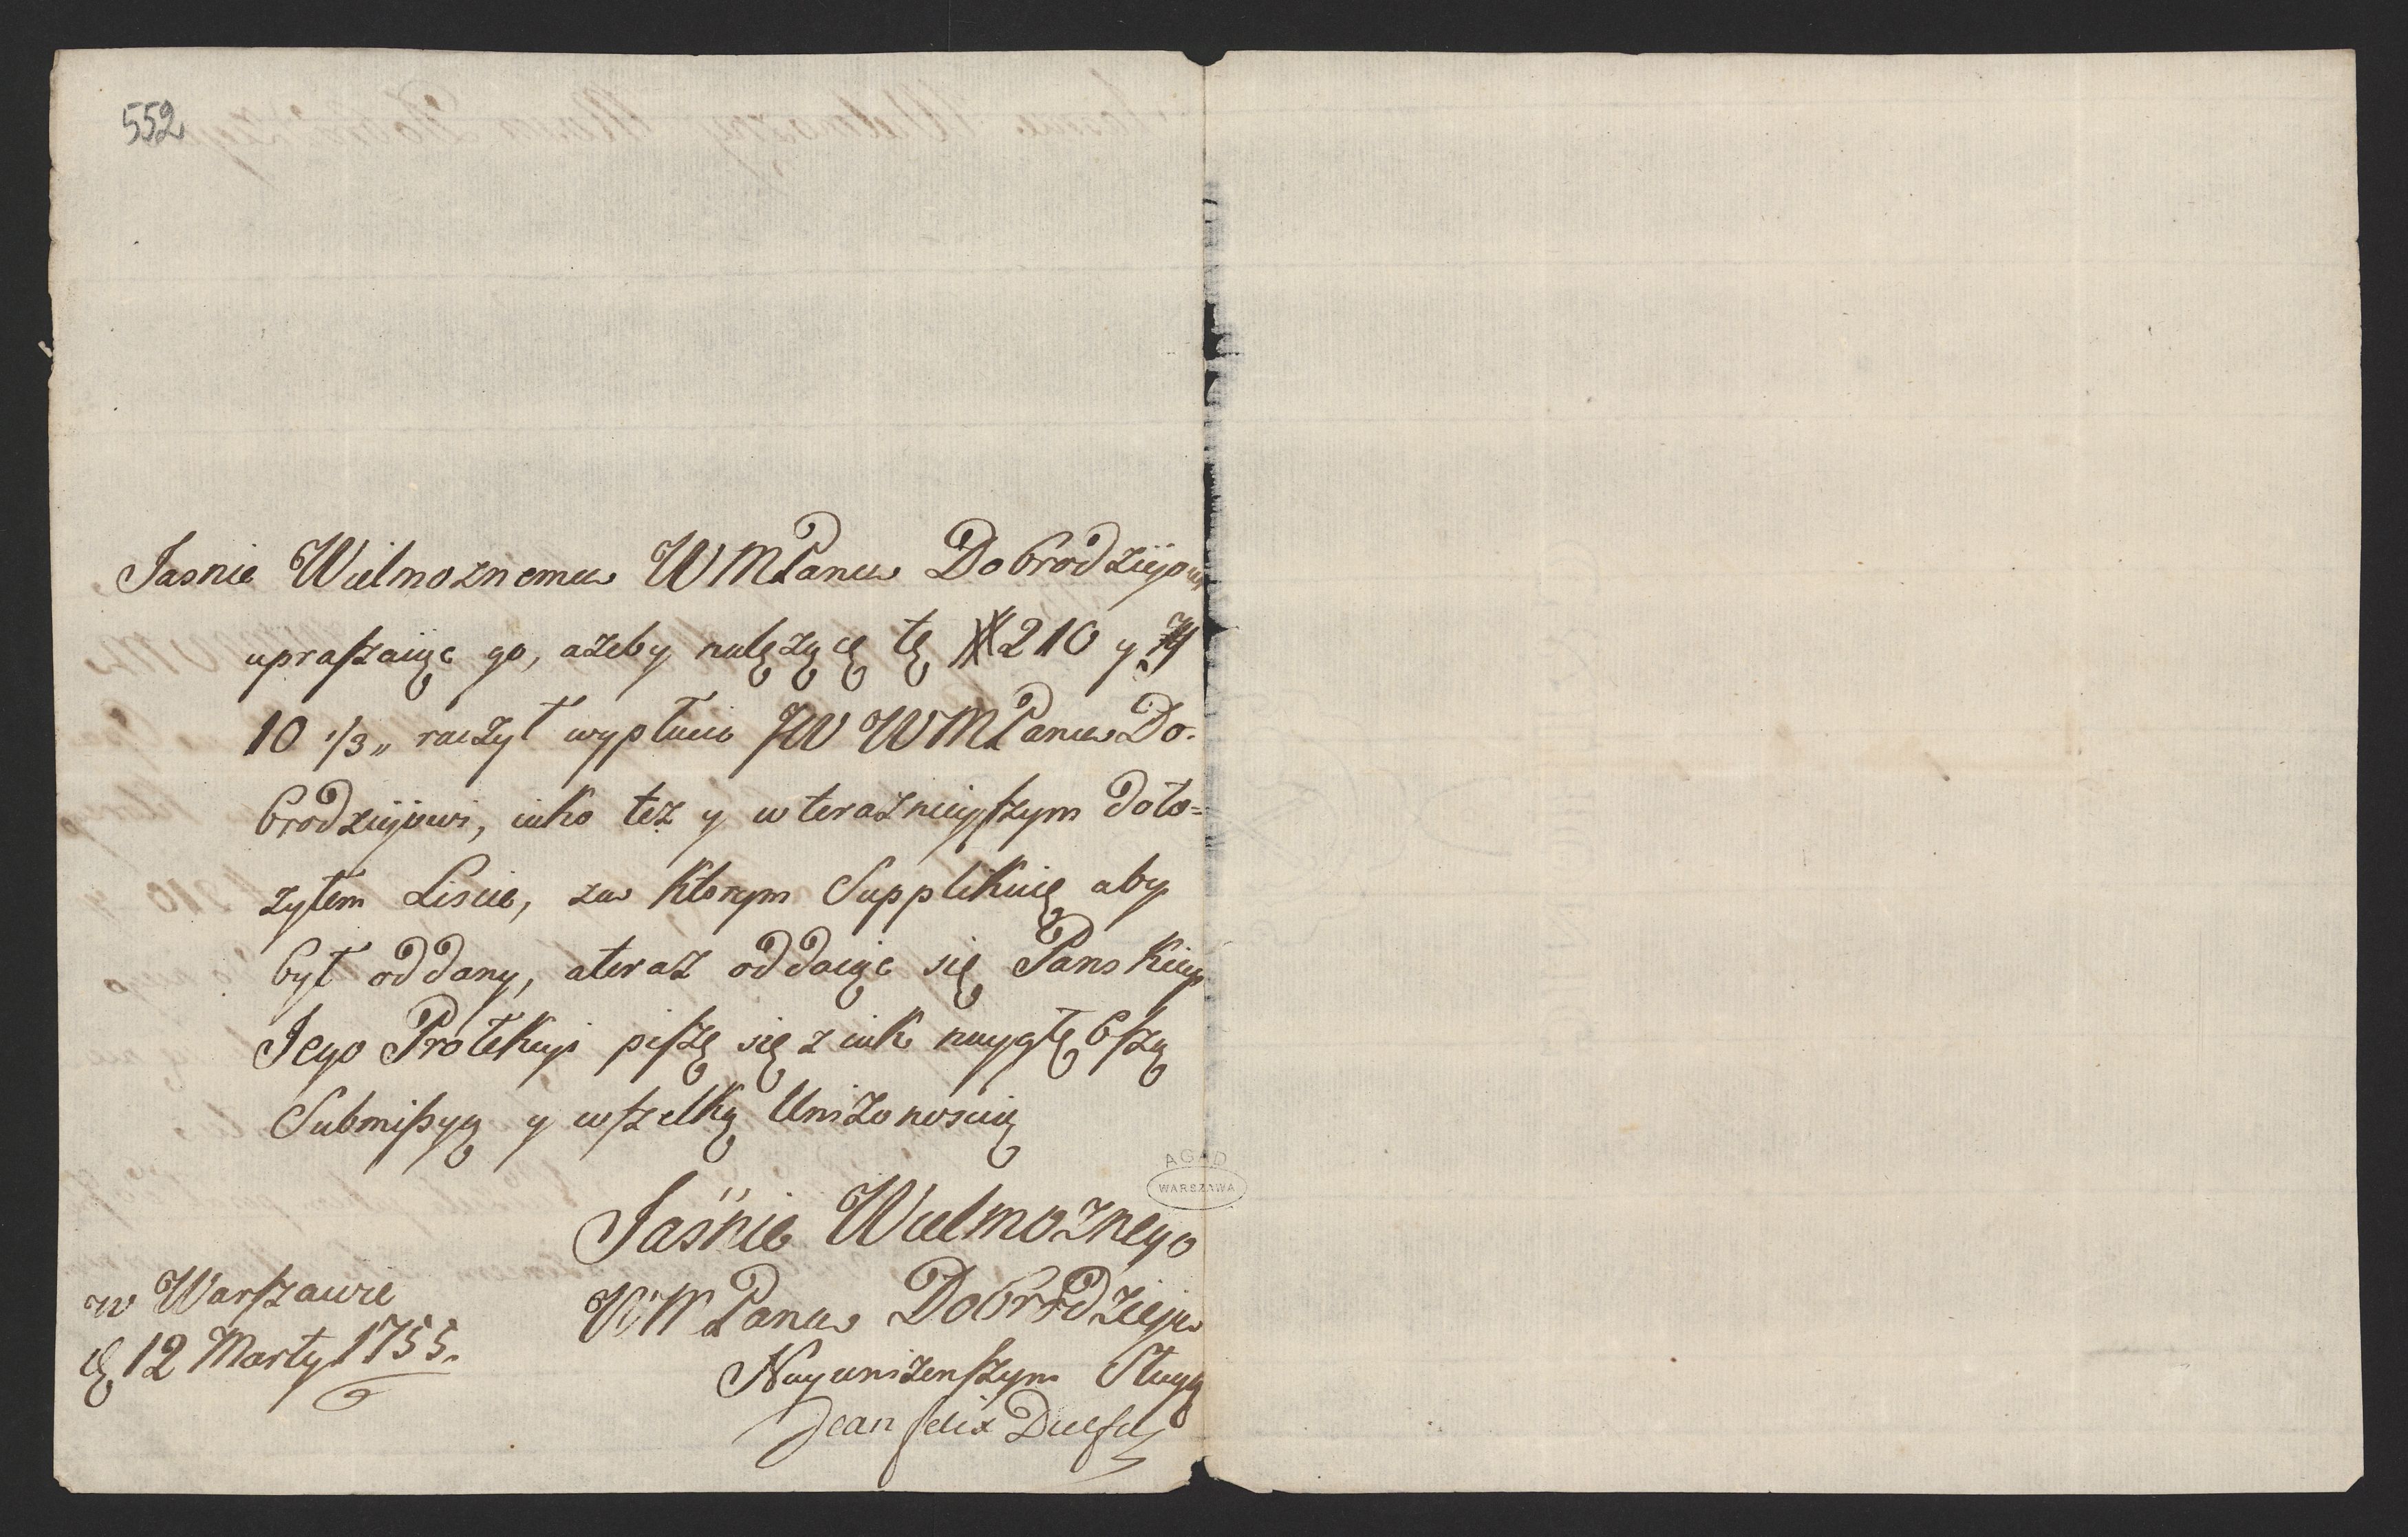 552
Jasnie Wielmoznemu WMPanu Dobrodzieiowi
upraszaiąc go, ażeby nalężącę tę # 210 y
10 1/3 „ raczył wypłacic JW WMPanu Do-
brodzieiowi, iako też y w teraznieyszym doło=
zyłem Liscie, za ktorym Supplikuię aby
był oddany, a teraz oddaiąc się Panskiey
Jego Protekcyi piszę się z iak naygłębszą
Submissyą y wszelką Uniżonoscią
Jaśnie Wielmożnego
WMPana Dobrodzieja
Nayuniżenszym Sługą
Jean felix
w Warszawie
d 12 Marty 1755.
AGAD
WARSZAWA